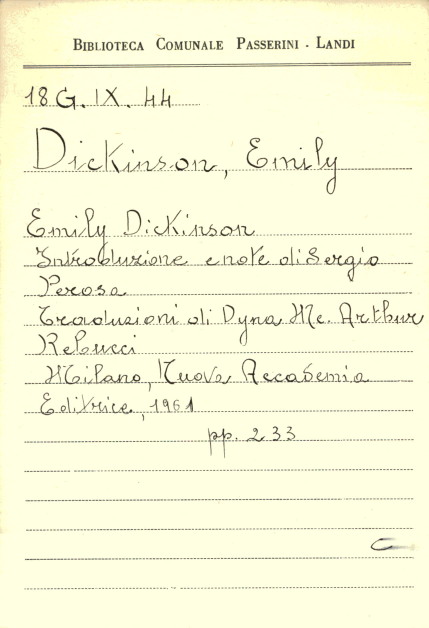 BIBLIOTECA COMUNALE PASSERINI - LANDI
18 G. IX. 44
Dickinson, Emily
Emily Dickinson
Introduzione e note di Sergio
Perosa
Traduzioni di Dyna Mc. Arthur
Rebucci
Milano, Nuova Accademia
Editrice, 1961
pp. 233
C